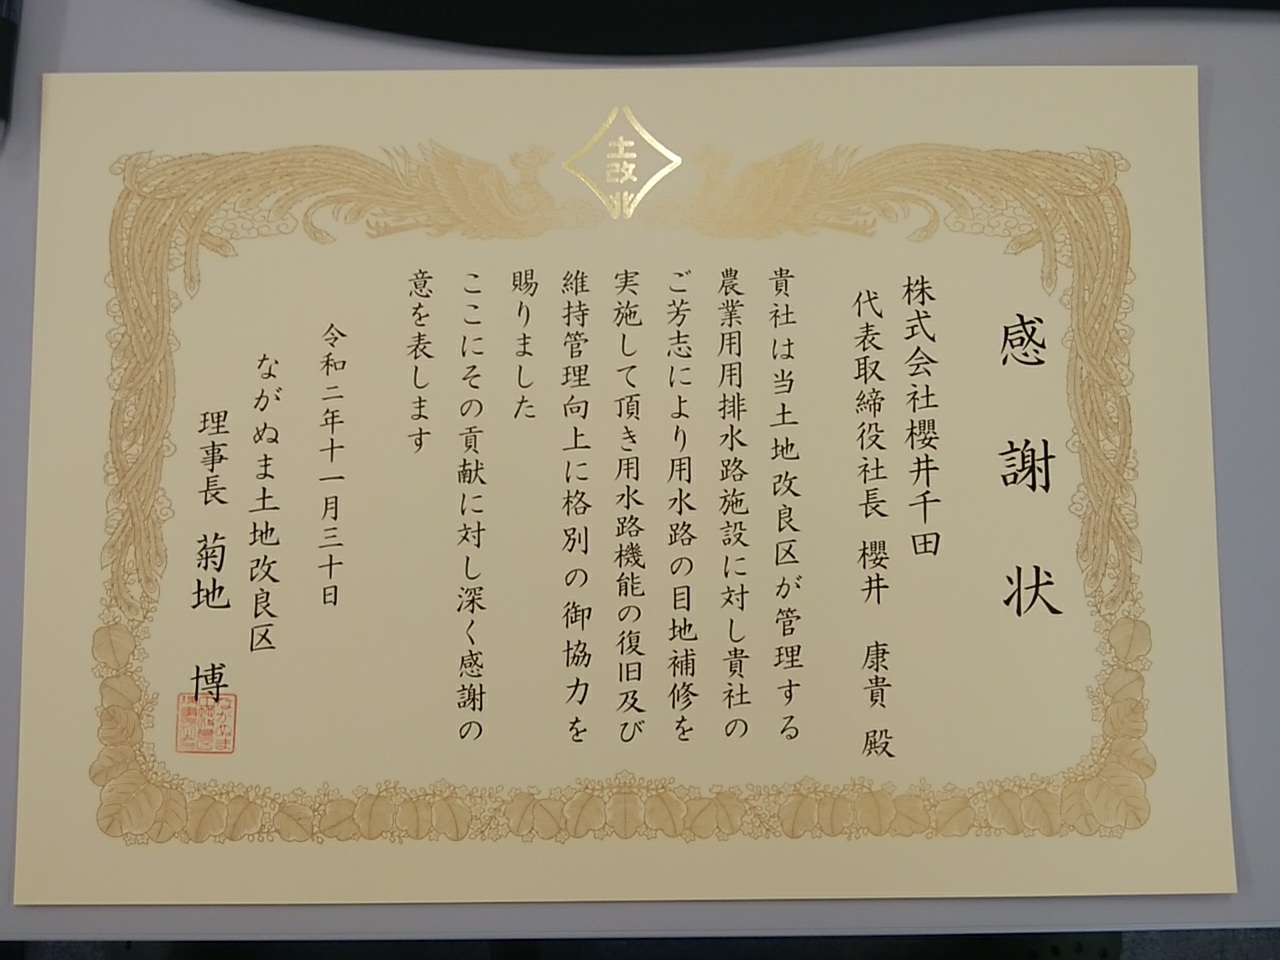 土改
北
感謝状
株式会社櫻井千田
代表取締役社長 櫻井 康貴 殿
貴社は当土地改良区が管理する
農業用用排水路施設に対し貴社の
ご芳志により用水路の目地補修を
実施して頂き用水路機能の復旧及び
維持管理向上に格別の御協力を
賜りました
ここにその貢献に対し深く感謝の
意を表します
令和二年十一月三十日
ながぬま土地改良区
理事長 菊地 博